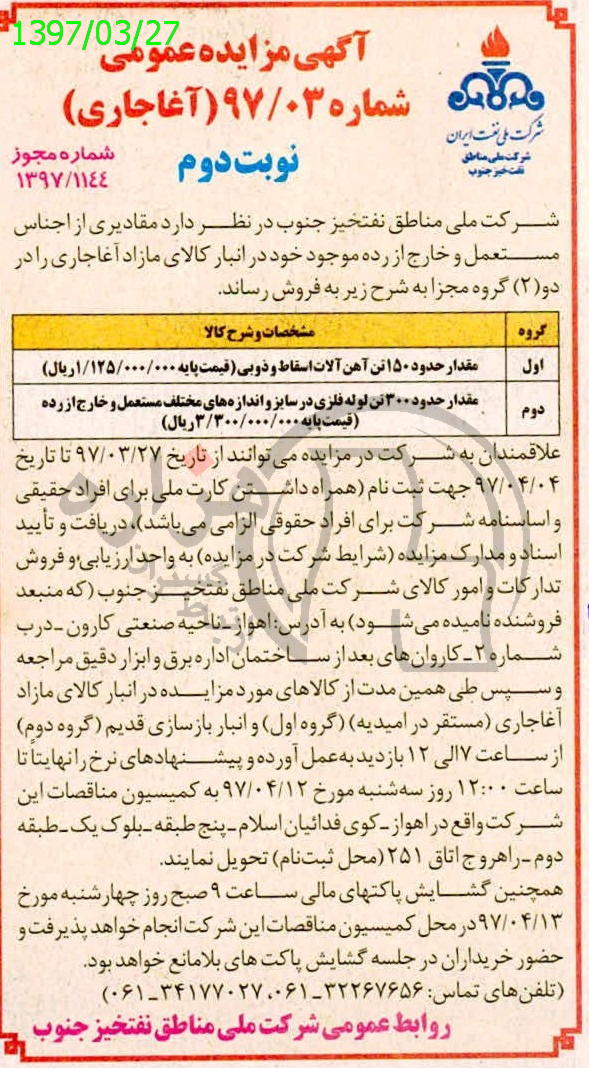 1397/03/27
آگهی مزایده عمومی
شماره ۹۷/۰۳ (آغاجاری)
نوبت دوم
شماره مجوز
۱۳۹۷/۱۱۴۴
شرکت ملی نفت ایران
شرکت ملی مناطق
نفت خیز جنوب
شرکت ملی مناطق نفتخیز جنوب در نظر دارد مقادیری از اجناس
مستعمل و خارج از رده موجود خود در انبار کالای مازاد آغاجاری را در
دو (۲) گروه مجزا به شرح زیر به فروش رساند.
گروه مشخصات و شرح کالا
اول مقدار حدود ۱۵۰ تن آهن آلات اسقاط و ذوبی (قیمت پایه ۱/۱۲۵/۰۰۰/۰۰۰ ریال)
دوم مقدار حدود ۳۰۰ تن لوله فلزی در سایز و اندازه های مختلف مستعمل و خارج از رده
(قیمت پایه ۳/۳۰۰/۰۰۰/۰۰۰ ریال)
علاقمندان به شرکت در مزایده می توانند از تاریخ ۹۷/۰۳/۲۷ تا تاریخ
۹۷/۰۴/۰۴ جهت ثبت نام (همراه داشتن کارت ملی برای افراد حقیقی
و اساسنامه شرکت برای افراد حقوقی الزامی می‌باشد)، دریافت و تأیید
اسناد و مدارک مزایده (شرایط شرکت در مزایده) به واحد ارزیابی و فروش
تدارکات و امور کالای شرکت ملی مناطق نفتخیز جنوب (که منبعد
فروشنده نامیده می شود) به آدرس: اهواز ـ ناحیه صنعتی کارون ـ درب
شماره ۲ ـ کاروان های بعد از ساختمان اداره برق و ابزار دقیق مراجعه
و سپس طی همین مدت از کالاهای مورد مزایده در انبار کالای مازاد
آغاجاری (مستقر در امیدیه) (گروه اول) و انبار بازسازی قدیم (گروه دوم)
از ساعت ۷ الی ۱۲ بازدید به عمل آورده و پیشنهادهای نرخ را نهایتاً تا
ساعت ۱۲:۰۰ روز سه شنبه مورخ ۹۷/۰۴/۱۲ به کمیسیون مناقصات این
شرکت واقع در اهواز ـ کوی فدائیان اسلام ـ پنج طبقه ـ بلوک یک ـ طبقه
دوم ـ راهرو ج اتاق ۲۵۱ (محل ثبت نام) تحویل نمایند.
همچنین گشایش پاکتهای مالی ساعت ۹ صبح روز چهارشنبه مورخ
۹۷/۰۴/۱۳ در محل کمیسیون مناقصات این شرکت انجام خواهد پذیرفت و
حضور خریداران در جلسه گشایش پاکت های بلامانع خواهد بود.
(تلفن های تماس: ۳۲۲۶۷۶۵۶ ـ ۰۶۱، ۳۴۱۷۷۰۲۷ ـ ۰۶۱)
روابط عمومی شرکت ملی مناطق نفتخیز جنوب